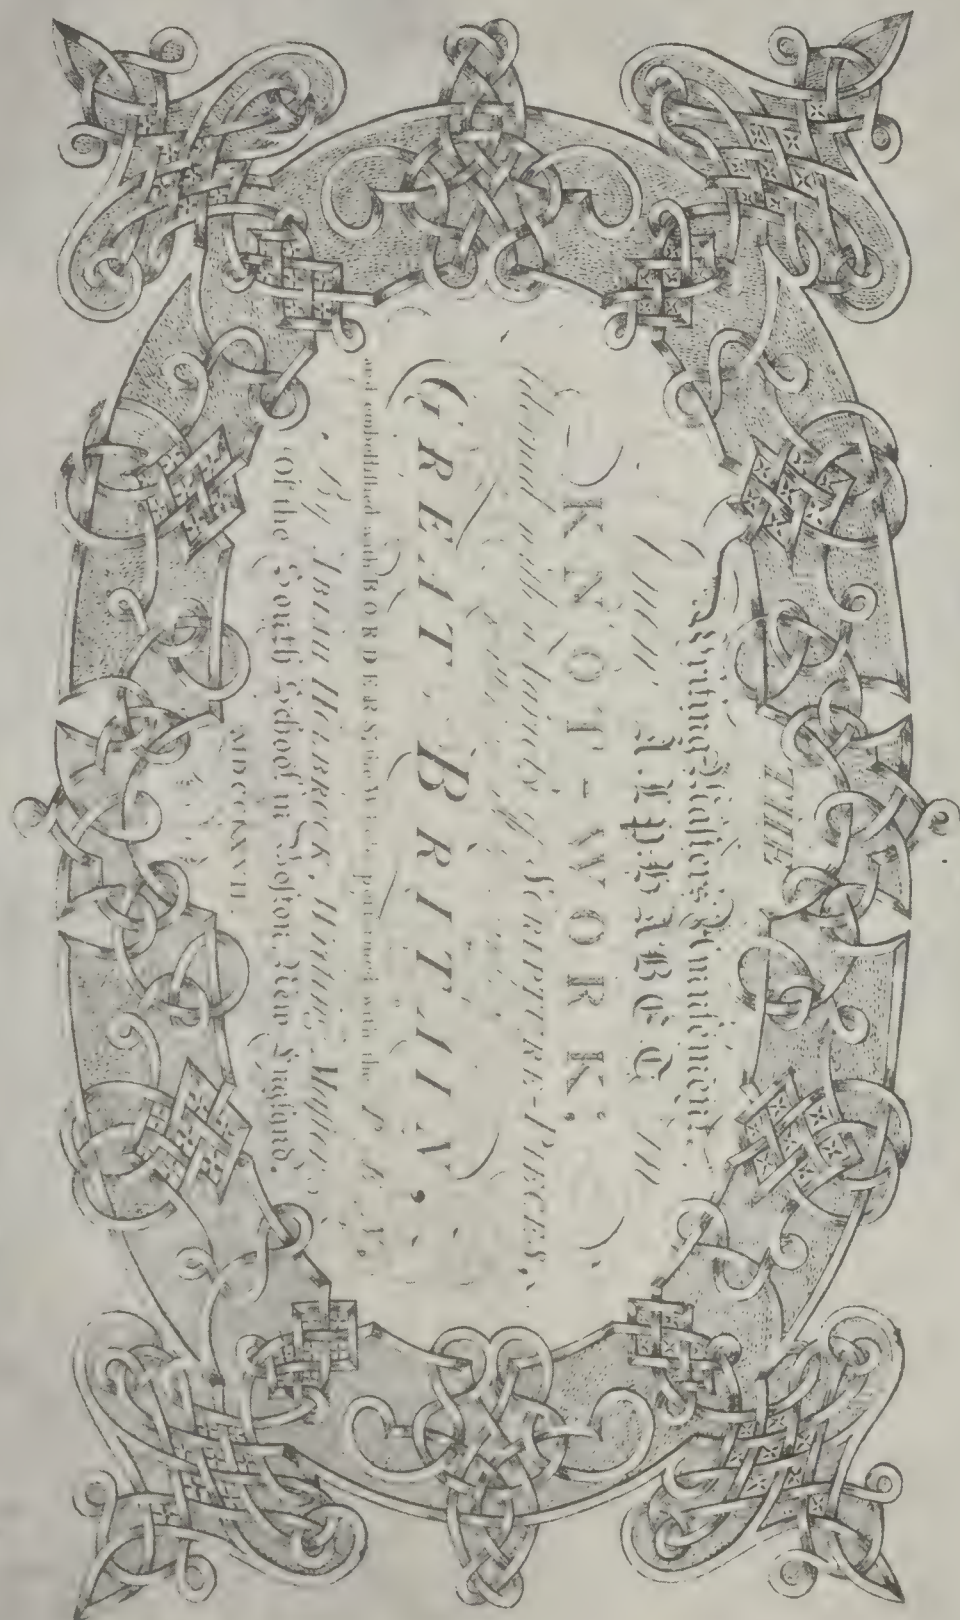 THE
Writing-Masters Amusement
An ALPHABET in
KNOT-WORK;
Adorned with a Variety of SCRIPTURE-PIECES,
GREAT BRITAIN,
and embellished with BORDERS, the Whole performed with the PEN,
By ABIAH HOLBROOK, Writing-Master
Of the South School in Boston, New England.
MDCCLXVII.